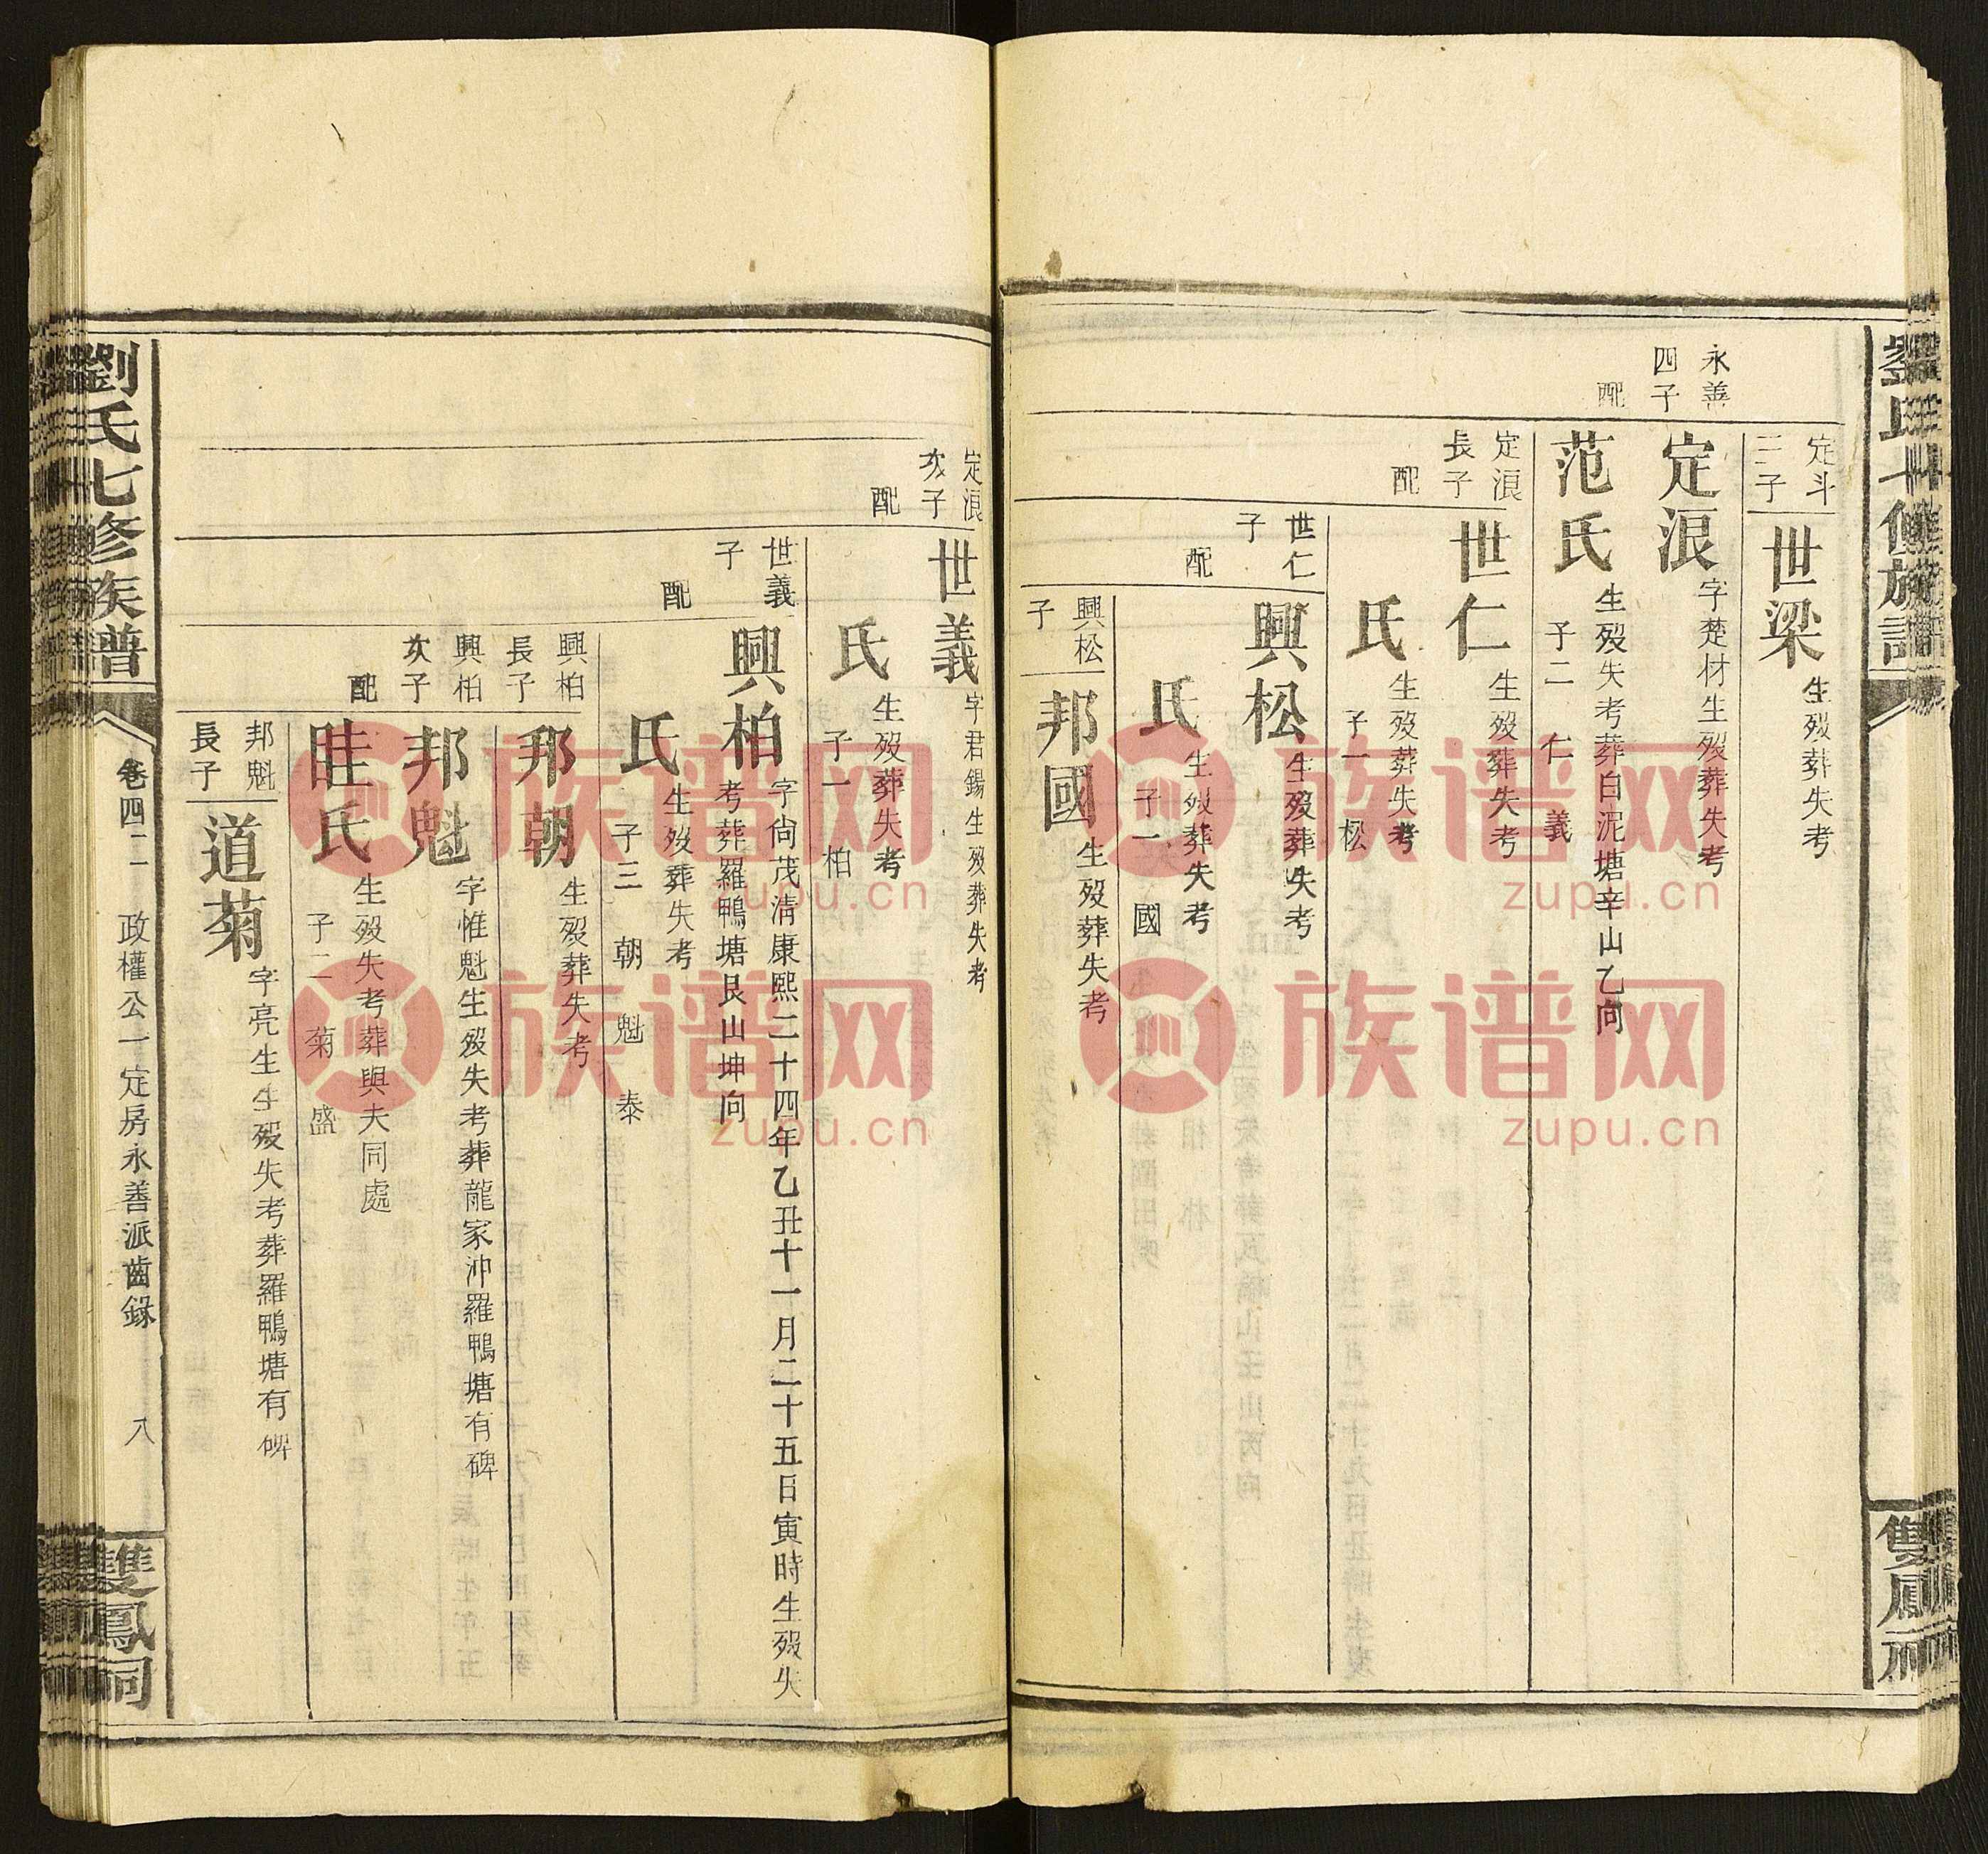 劉氏七修族譜
雙鳳祠
定斗
二子
世梁
生歿葬失考
永善
四子
定浪
字楚材生歿葬失考
配
范氏
生歿失考葬白泥塘辛山乙向
子二 仁 義
定浪
長子
世仁
生歿葬失考
配
氏
生歿葬失考
子一 松
世仁
子
興松
生歿葬失考
配
氏
生歿葬失考
子一 國
興松
子
邦國
生歿葬失考
定浪
次子
世義
字君錫生歿葬失考
配
氏
生歿葬失考
子一 柏
世義
子
興柏
字尙茂清康熙二十四年乙丑十一月二十五日寅時生歿失
考葬羅鴨塘艮山坤向
配
氏
生歿葬失考
子三 朝 魁 泰
興柏
長子
邦朝
生歿葬失考
興柏
次子
邦魁
字惟魁生歿失考葬龍家沖羅鴨塘有碑
配
眭氏
生歿失考葬與夫同處
子二 菊 盛
邦魁
長子
道菊
字亮生生歿失考葬羅鴨塘有碑
劉氏七修族譜
卷四二 政權公一定房永善派齒錄 八
雙鳳祠
族谱网
zupu.cn
族谱网
zupu.cn
族谱网
zupu.cn
族谱网
zupu.cn